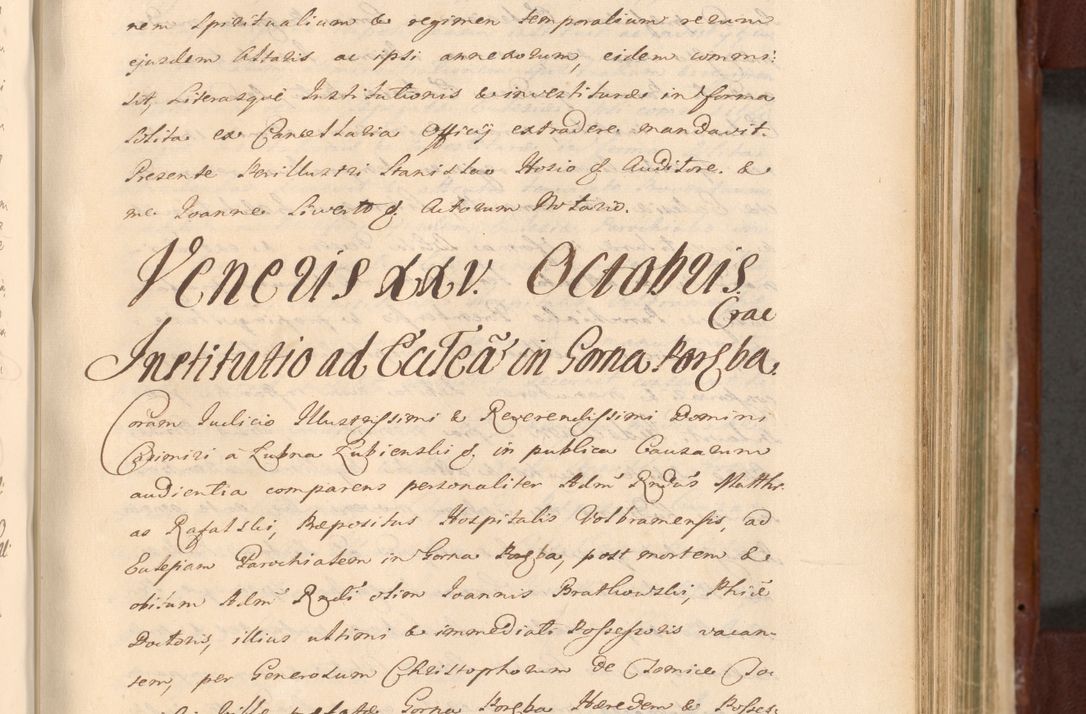 nem Spiritualium & regimen temporalium rerum
ejusdem Altaris ac ipsi annexorum, eidem commi:
sit, Literasque Institutionis & investiturae in forma
solita ex Cancellaria Officij extradere mandavit.
Presente Perillustri Stanislao Hosio J. Auditore. &
me Joanne Siwerth J. Actorum Notario.
Veneris XXV. Octobris.
Institutio ad Eccleã in Gorna Poręba.
Coram Judicio Illustrissimi & Reverendissimi Domini
Casimiri à Łubna Łubienski J. in publica Causarum
audientia comparens personaliter Admᵈ Rndus Matthi
as Rafalski, Praepositus Hospitalis Volbramensis, ad
Eccles̃iam Parochialem in Gorna Poręba, post mortem &
obitum Admᵈ Rndi olim Joannis Bratkowski, Phiæ
Doctoris, illius ultimi & immediati Possessoris vacan-
tem, per Generosum Christophorum de
Gorna Poręba Haeredem & Posses